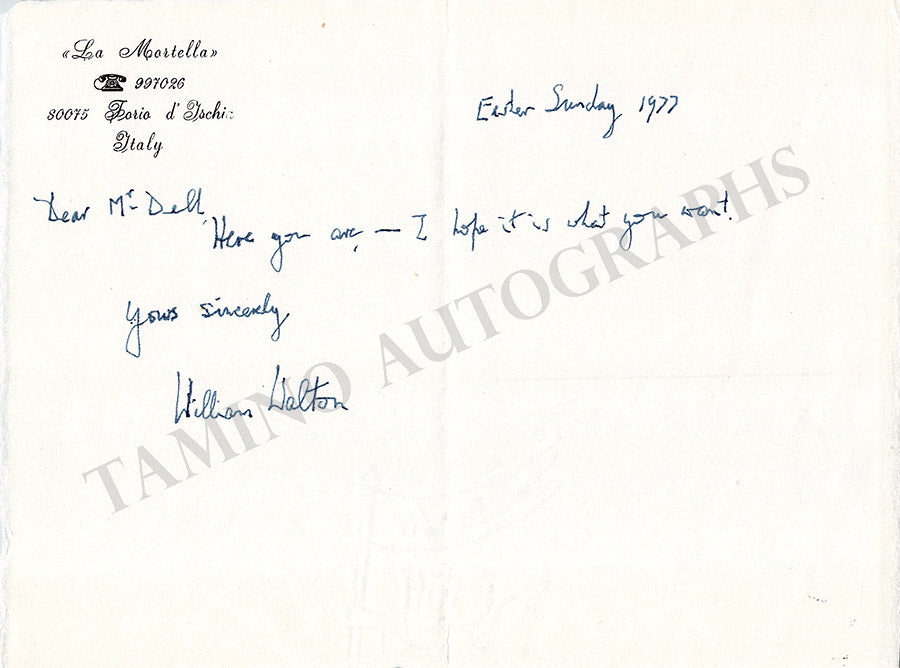 «La Mortella»
☎ 997026
80075 Forio d'Ischi
Italy
Easter Sunday 1977
Dear Mr Dell,
Here you are, — I hope it is what you want.
Yours sincerely
William Walton
TAMINO AUTOGRAPHS